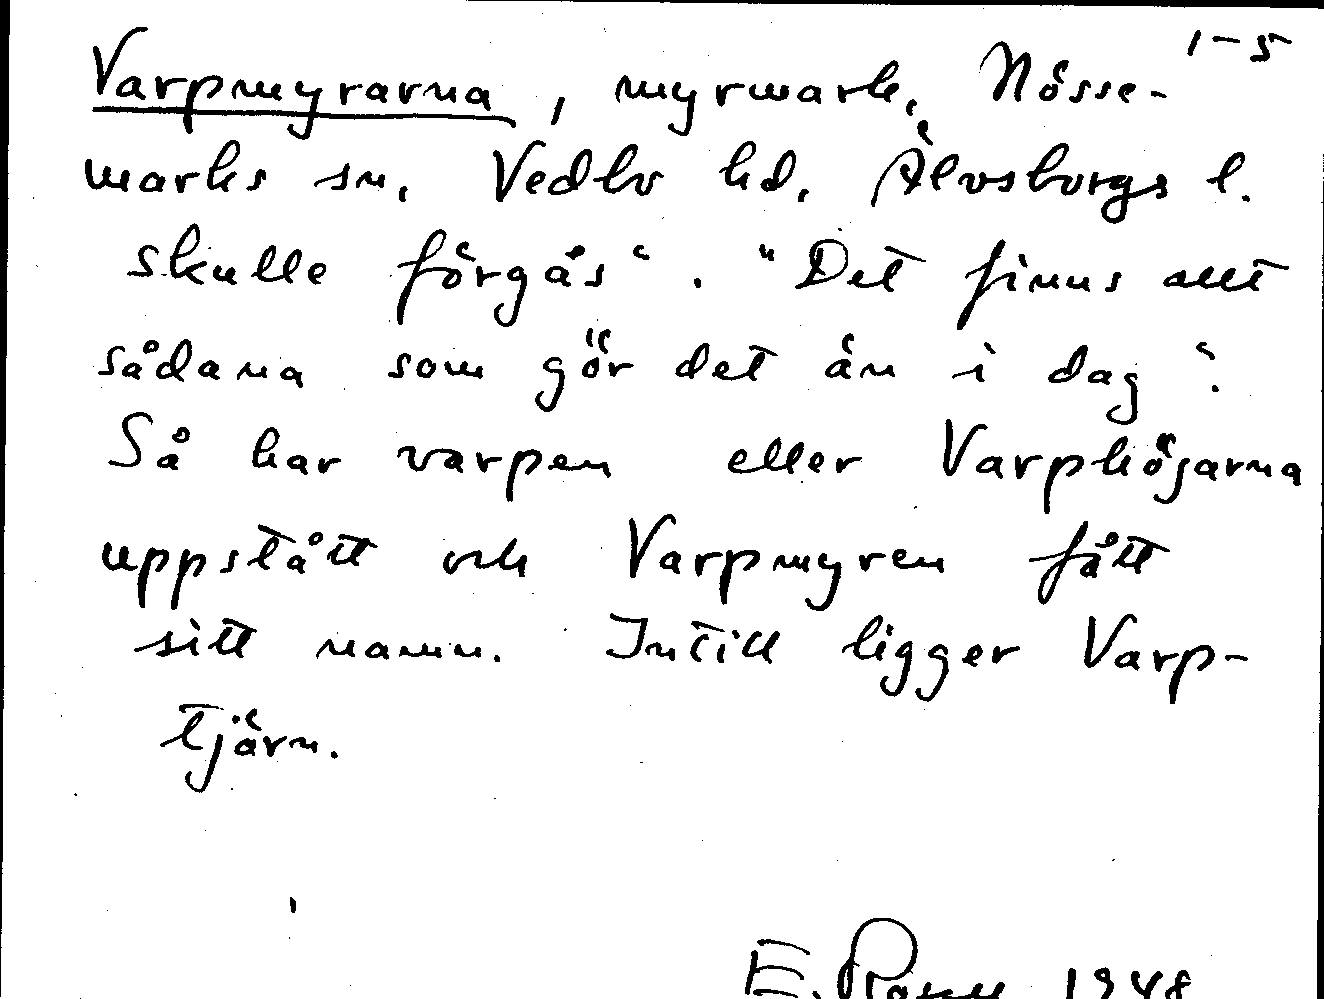 1-5
Varpmyrarna, myrmark, Nösse-
marks sn, Vedbo hd, Älvsborgs l.
skulle förgås". "Det finns allt
sådana som gör det än i dag".
Så har varpen eller Varphöjarna
uppstått och Varpmyren fått
sitt namn. Intill ligger Varp-
tjärn.
E. 1948